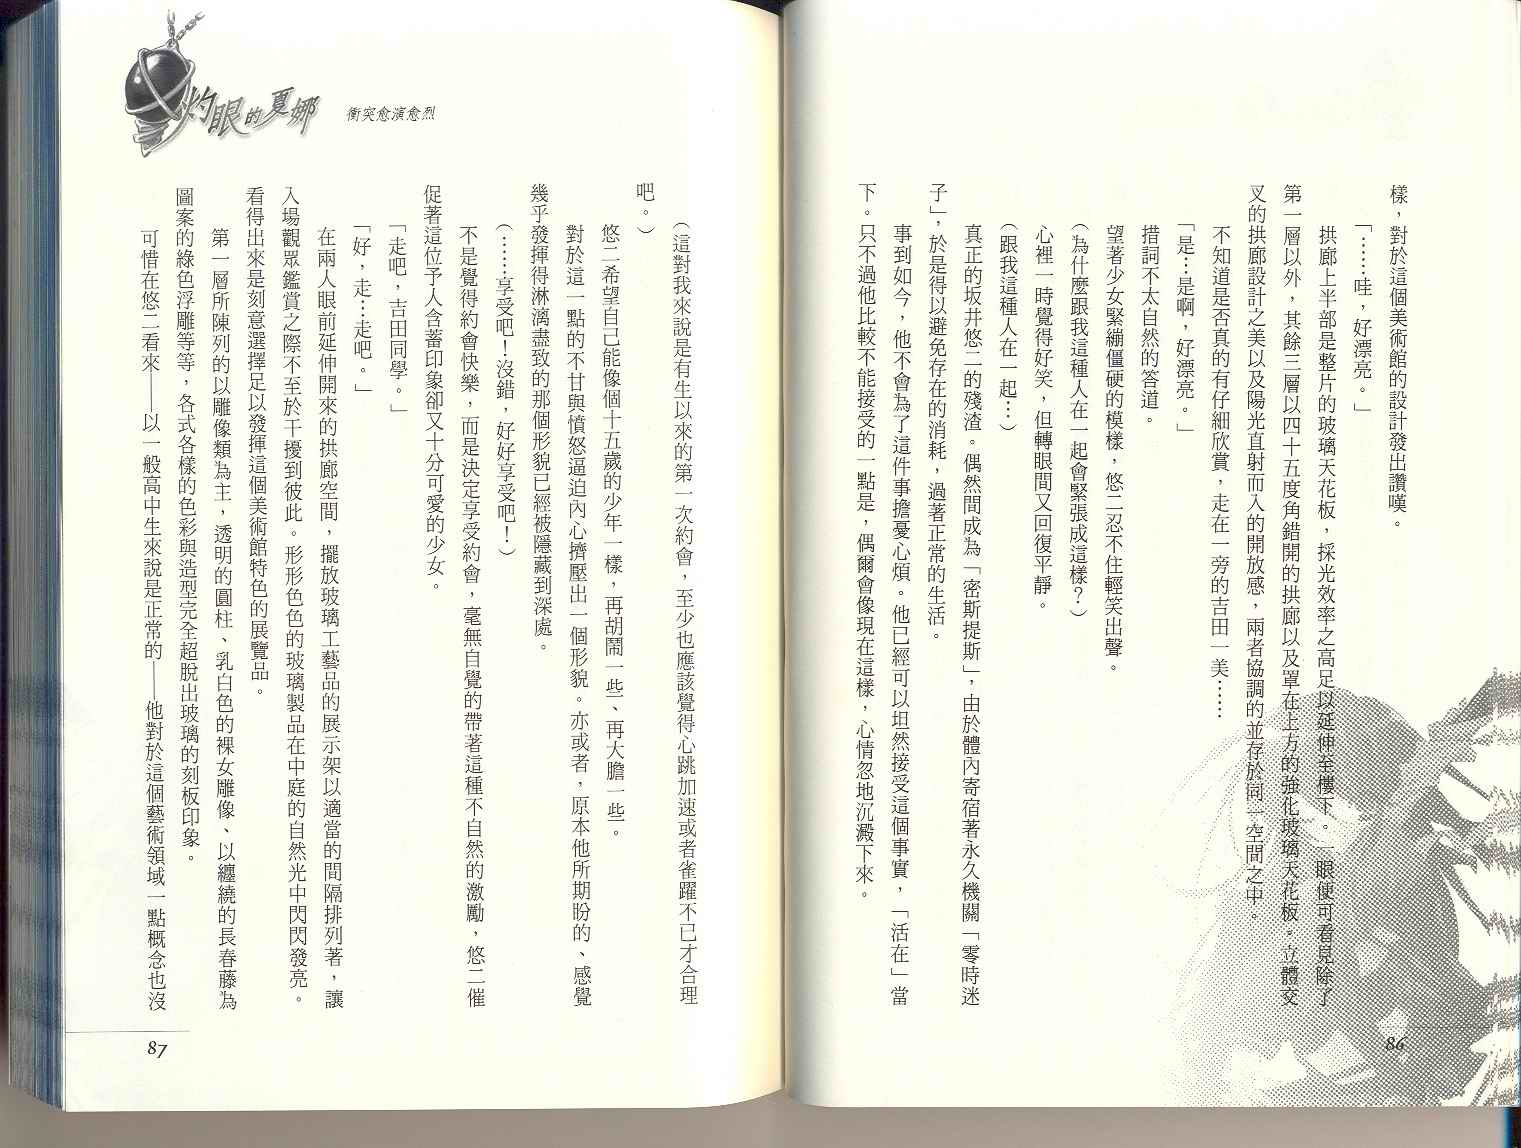 樣，對於這個美術館的設計發出讚嘆。
「……哇，好漂亮。」
拱廊上半部是整片的玻璃天花板，採光效率之高足以延伸至樓下。一眼便可看見除了
第一層以外，其餘三層以四十五度角錯開的拱廊以及罩在上方的強化玻璃天花板。立體交
叉的拱廊設計之美以及陽光直射而入的開放感，兩者協調的並存於同一空間之中。
不知道是否真的有仔細欣賞，走在一旁的吉田一美……
「是…是啊，好漂亮。」
措詞不太自然的答道。
望著少女緊繃僵硬的模樣，悠二忍不住輕笑出聲。
（為什麼跟我這種人在一起會緊張成這樣？）
心裡一時覺得好笑，但轉眼間又回復平靜。
（跟我這種人在一起…）
真正的坂井悠二的殘渣。偶然間成為「密斯提斯」，由於體內寄宿著永久機關「零時迷
子」，於是得以避免存在的消耗，過著正常的生活。
事到如今，他不會為了這件事擔憂心煩。他已經可以坦然接受這個事實，「活在」當
下。只不過他比較不能接受的一點是，偶爾會像現在這樣，心情忽地沉澱下來。
86
灼眼的夏娜
衝突愈演愈烈
（這對我來說是有生以來的第一次約會，至少也應該覺得心跳加速或者雀躍不已才合理
吧。）
悠二希望自己能像個十五歲的少年一樣，再胡鬧一些、再大膽一些。
對於這一點的不甘與憤怒逼迫內心擠壓出一個形貌。亦或者，原本他所期盼的、感覺
幾乎發揮得淋漓盡致的那個形貌已經被隱藏到深處。
（……享受吧！沒錯，好好享受吧！）
不是覺得約會快樂，而是決定享受約會，毫無自覺的帶著這種不自然的激勵，悠二催
促著這位予人含蓄印象卻又十分可愛的少女。
「走吧，吉田同學。」
「好，走…走吧。」
在兩人眼前延伸開來的拱廊空間，擺放玻璃工藝品的展示架以適當的間隔排列著，讓
入場觀眾鑑賞之際不至於干擾到彼此。形形色色的玻璃製品在中庭的自然光中閃閃發亮。
看得出來是刻意選擇足以發揮這個美術館特色的展覽品。
第一層所陳列的以雕像類為主，透明的圓柱、乳白色的裸女雕像、以纏繞的長春藤為
圖案的綠色浮雕等等，各式各樣的色彩與造型完全超脫出玻璃的刻板印象。
可惜在悠二看來——以一般高中生來說是正常的——他對於這個藝術領域一點概念也沒
87